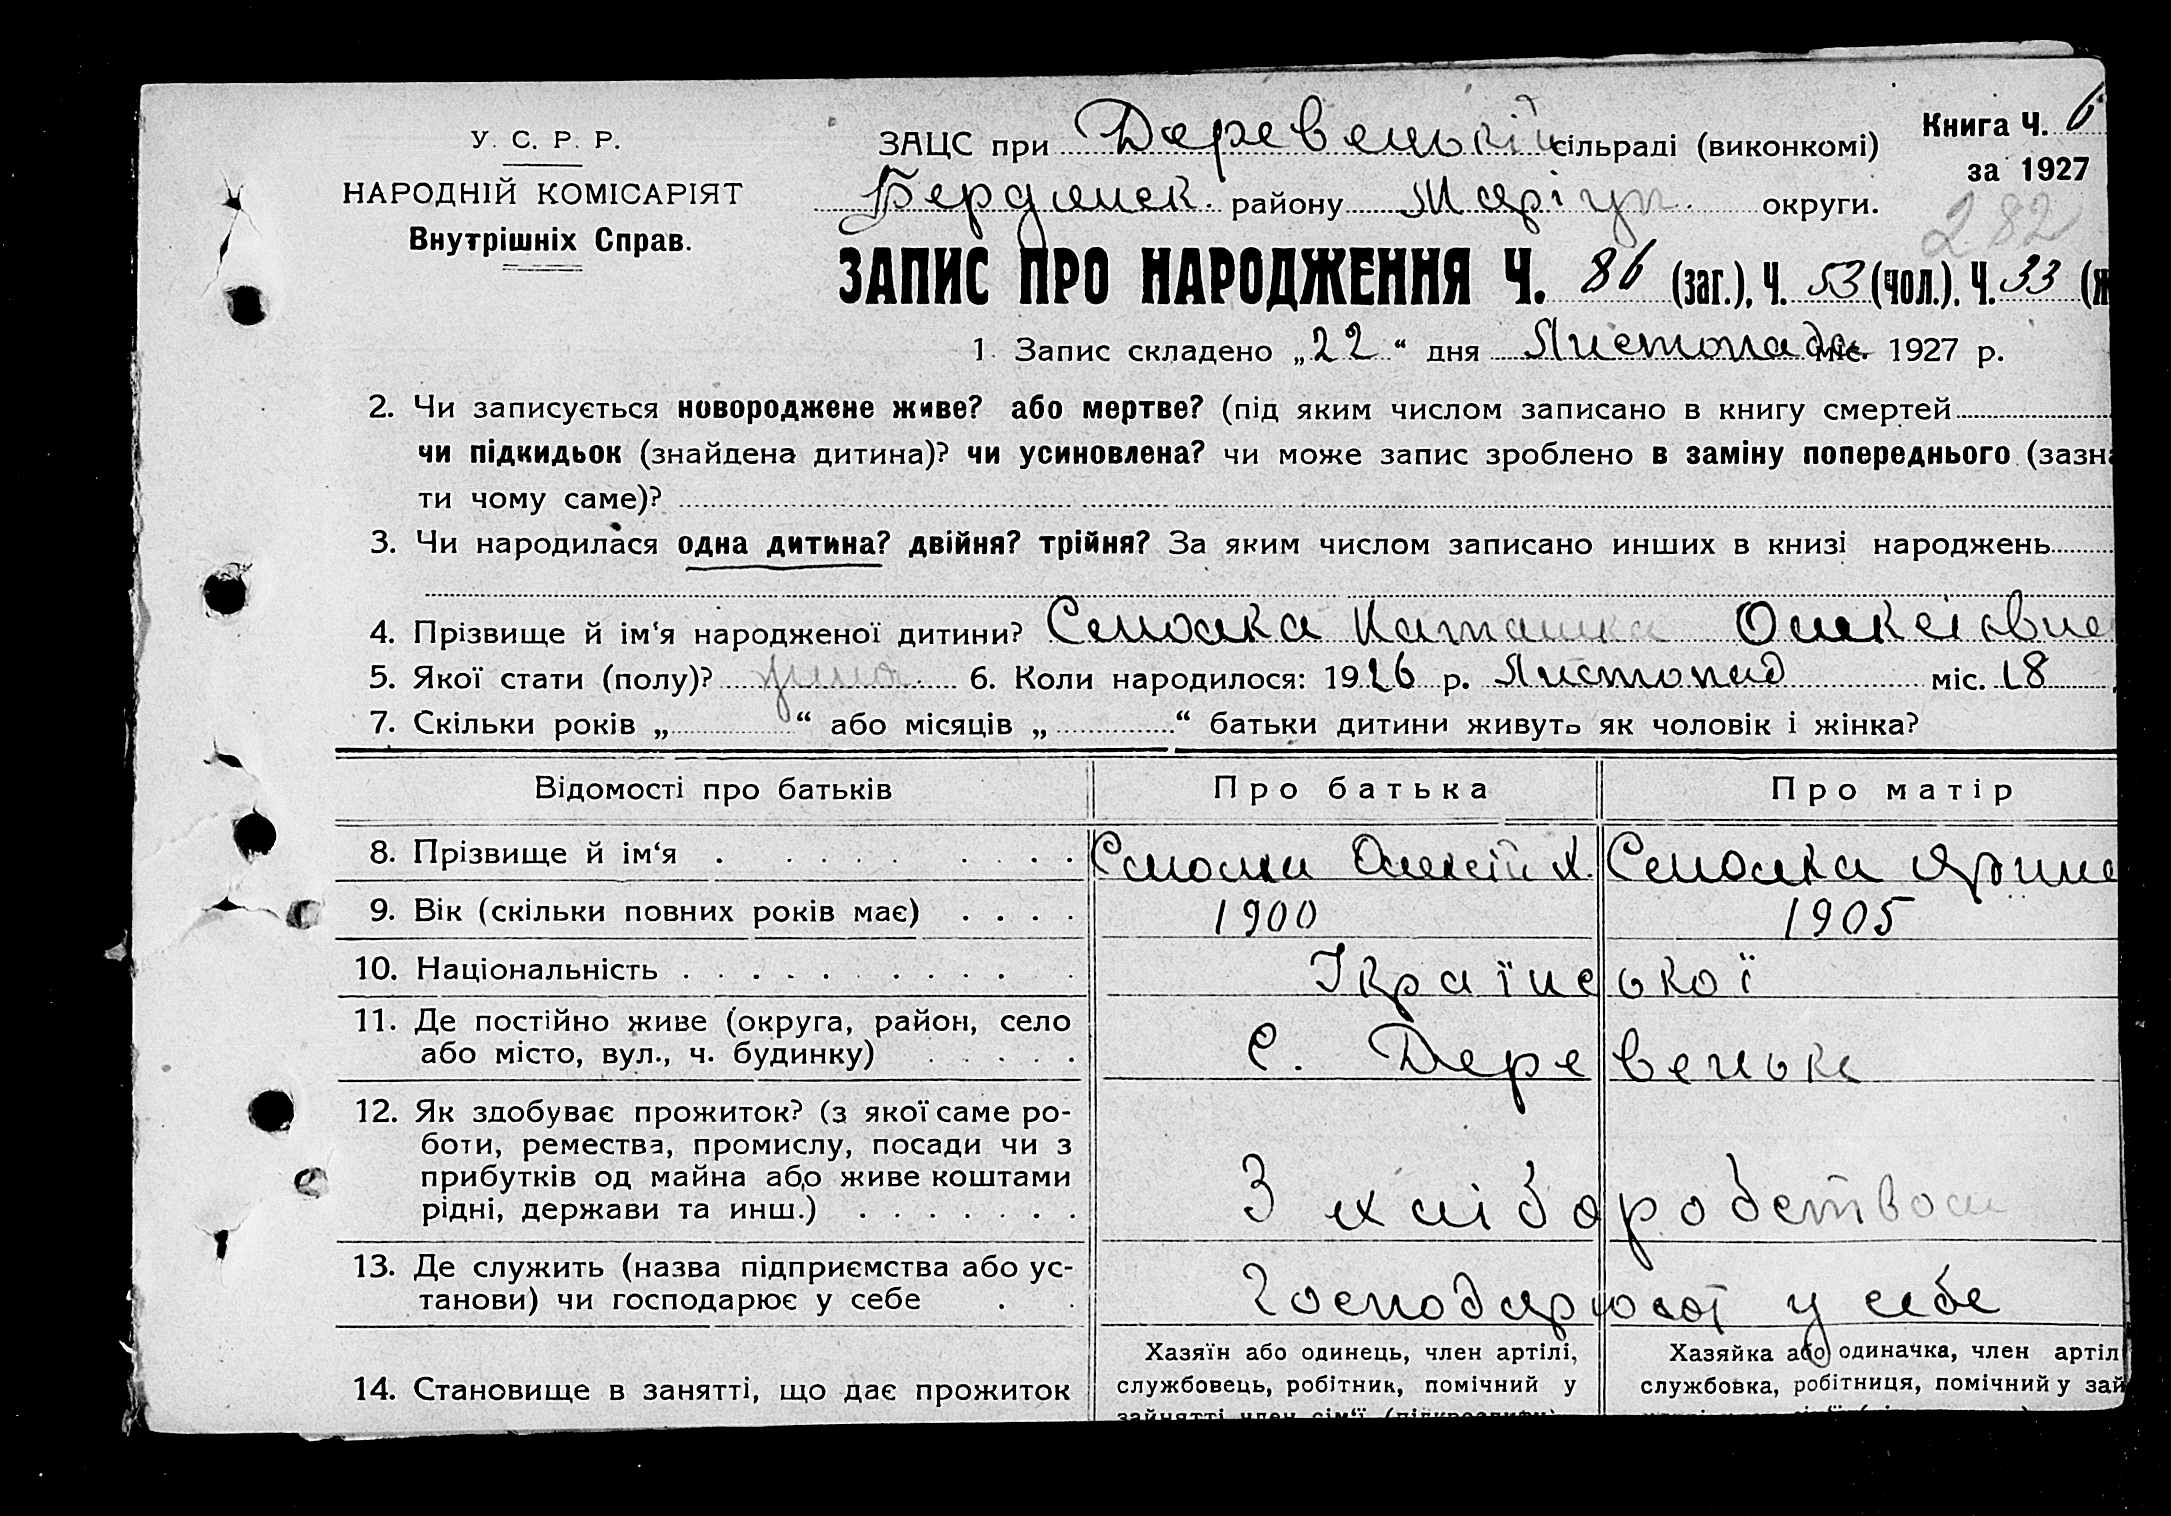 У. С. Р. Р.
НАРОДНІЙ КОМІСАРІЯТ
Внутрішніх Справ.
ЗАЦС при Деревецькій сільраді (виконкомі)
Бердянск. району Маріуп. округи.
Книга Ч. 6
за 1927
282
ЗАПИС ПРО НАРОДЖЕННЯ Ч. 86 (заг.), Ч. 53 (чол.). Ч. 33 (ж
1. Запис складено „22“ дня Листопада міс. 1927 р.
2. Чи записується новороджене живе? або мертве? (під яким числом записано в книгу смертей
чи підкидьок (знайдена дитина)? чи усиновлена? чи може запис зроблено в заміну попереднього (зазна
ти чому саме)?
3. Чи народилася одна дитина? двійня? трійня? За яким числом записано инших в книзі народжень
4. Прізвище й ім‘я народженої дитини?
5. Якої стати (полу)? 6. Коли народилося: 1926 р. Листопад міс. 18
7. Скільки років „ “ або місяців „ “ батьки дитини живуть як чоловік і жінка?
Відомості про батьків Про батька Про матір
8. Прізвище й ім‘я Олексій Х. Ярина
9. Вік (скільки повних років має) 1900 1905
10. Національність Української
11. Де постійно живе (округа, район, село
або місто, вул., ч. будинку) С. Деревецьке
12. Як здобуває прожиток? (з якої саме ро-
боти, ремества, промислу, посади чи з
прибутків од майна або живе коштами
рідні, держави та инш.) З хліборобством
13. Де служить (назва підприємства або ус-
танови) чи господарює у себе у себе
14. Становище в занятті, що дає прожиток
Хазяїн або одинець, член артілі,
службовець, робітник, помічний у
зайнятті член сім‘ї (підкреслити)
Хазяйка або одиначка, член артіл
службовка, робітниця, помічний у зай